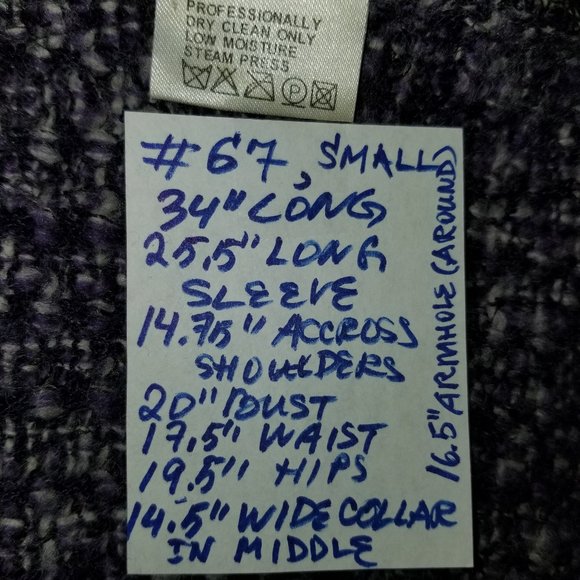 PROFESSIONALLY
DRY CLEAN ONLY
LOW MOISTURE
STEAM PRESS
P
#67, SMALL
34" LONG
25,5" LONG
SLEEVE
14.75" ACCROSS
SHOULDERS
20" BUST
17,5" WAIST
19.5" HIPS
14.5" WIDE COLLAR
IN MIDDLE
16.5" ARMHOLE (AROUND)